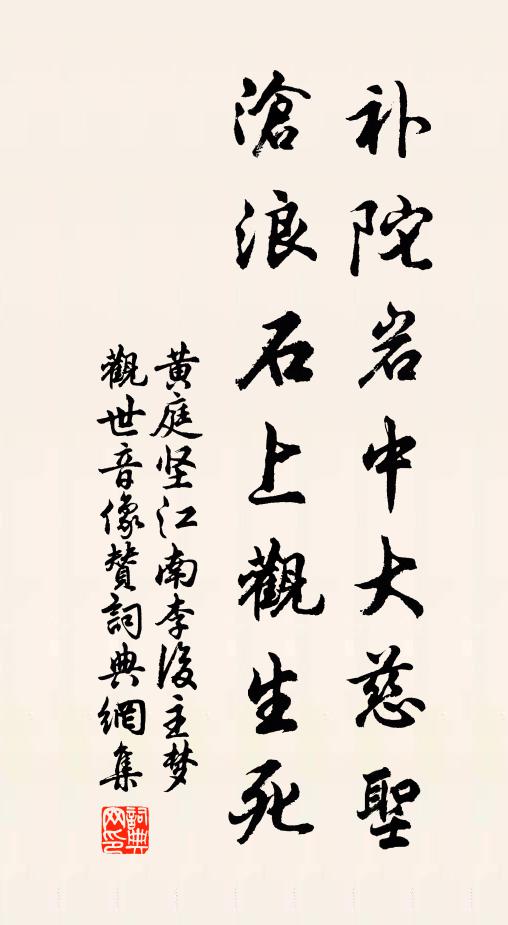 补陀岩中大慈聖
滄浪石上觀生死
黄庭坚江南李後主梦
觀世音像贊詞典網集
詞典网印